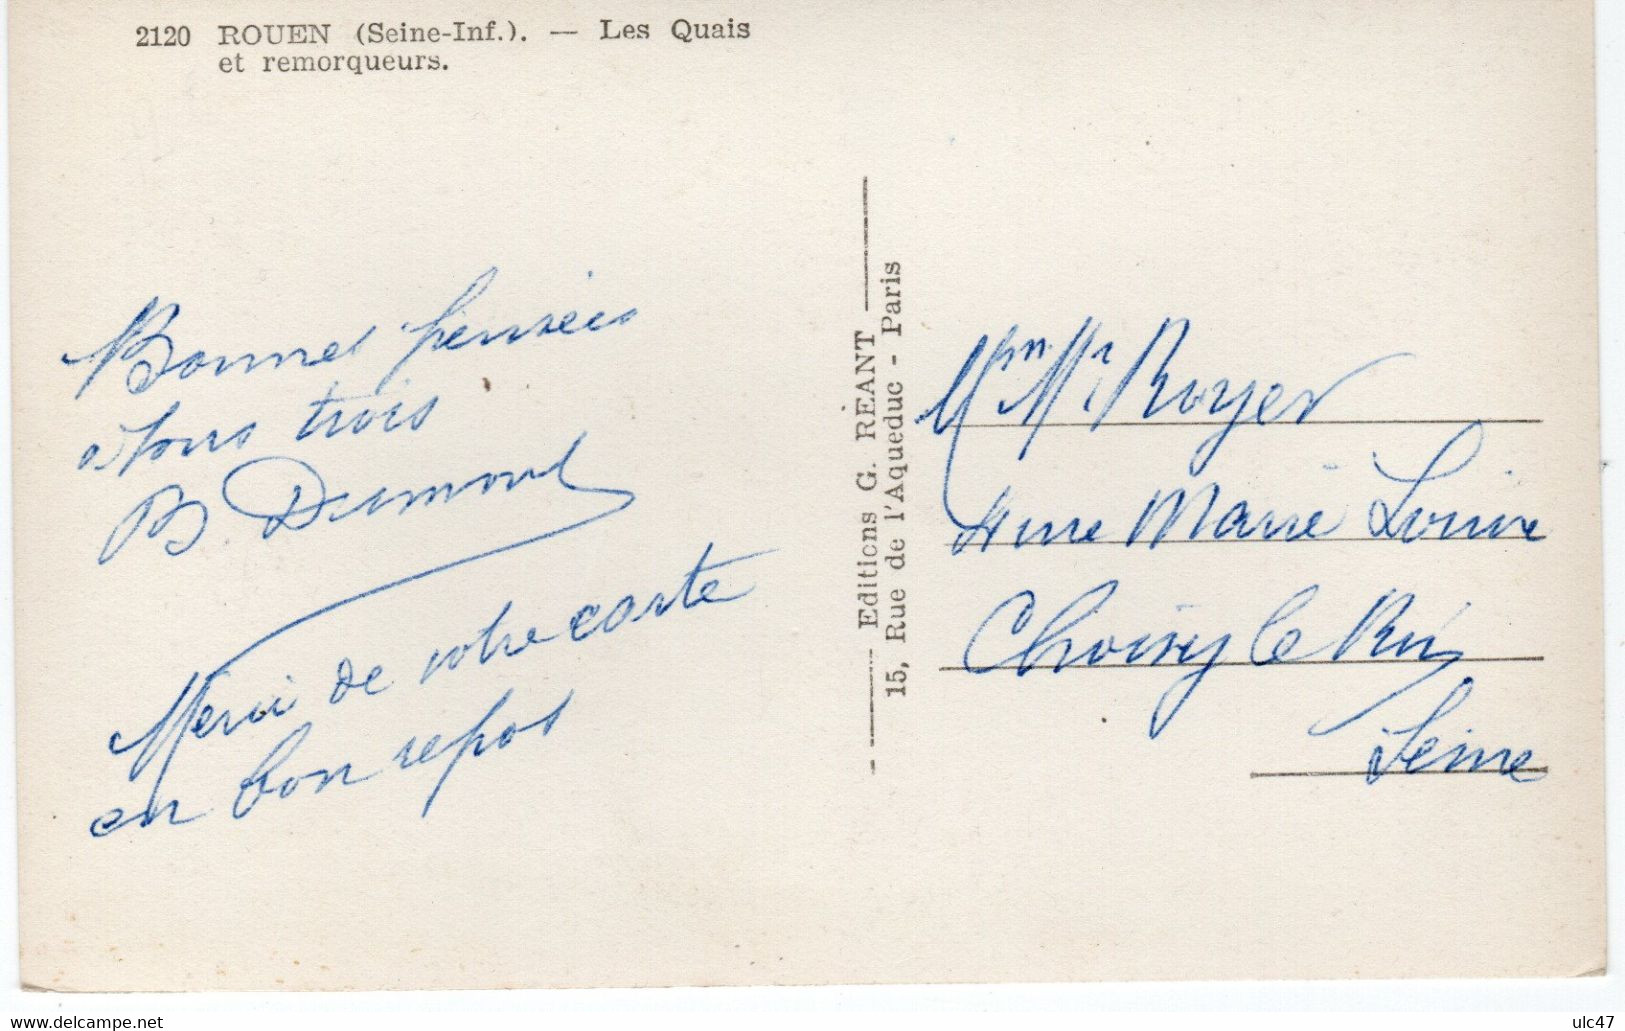 2120 ROUEN (Seine-Inf.). — Les Quais
et remorqueurs.
Bonnes pensées
a tous trois
B. Dumont
Merci de votre carte
en bon repos
Editions G. RÉANT
15, Rue de l'Aqueduc - Paris
Royer
Anne Marie Louise
Choisy le Roi
Seine
www.delcampe.net
ulc47